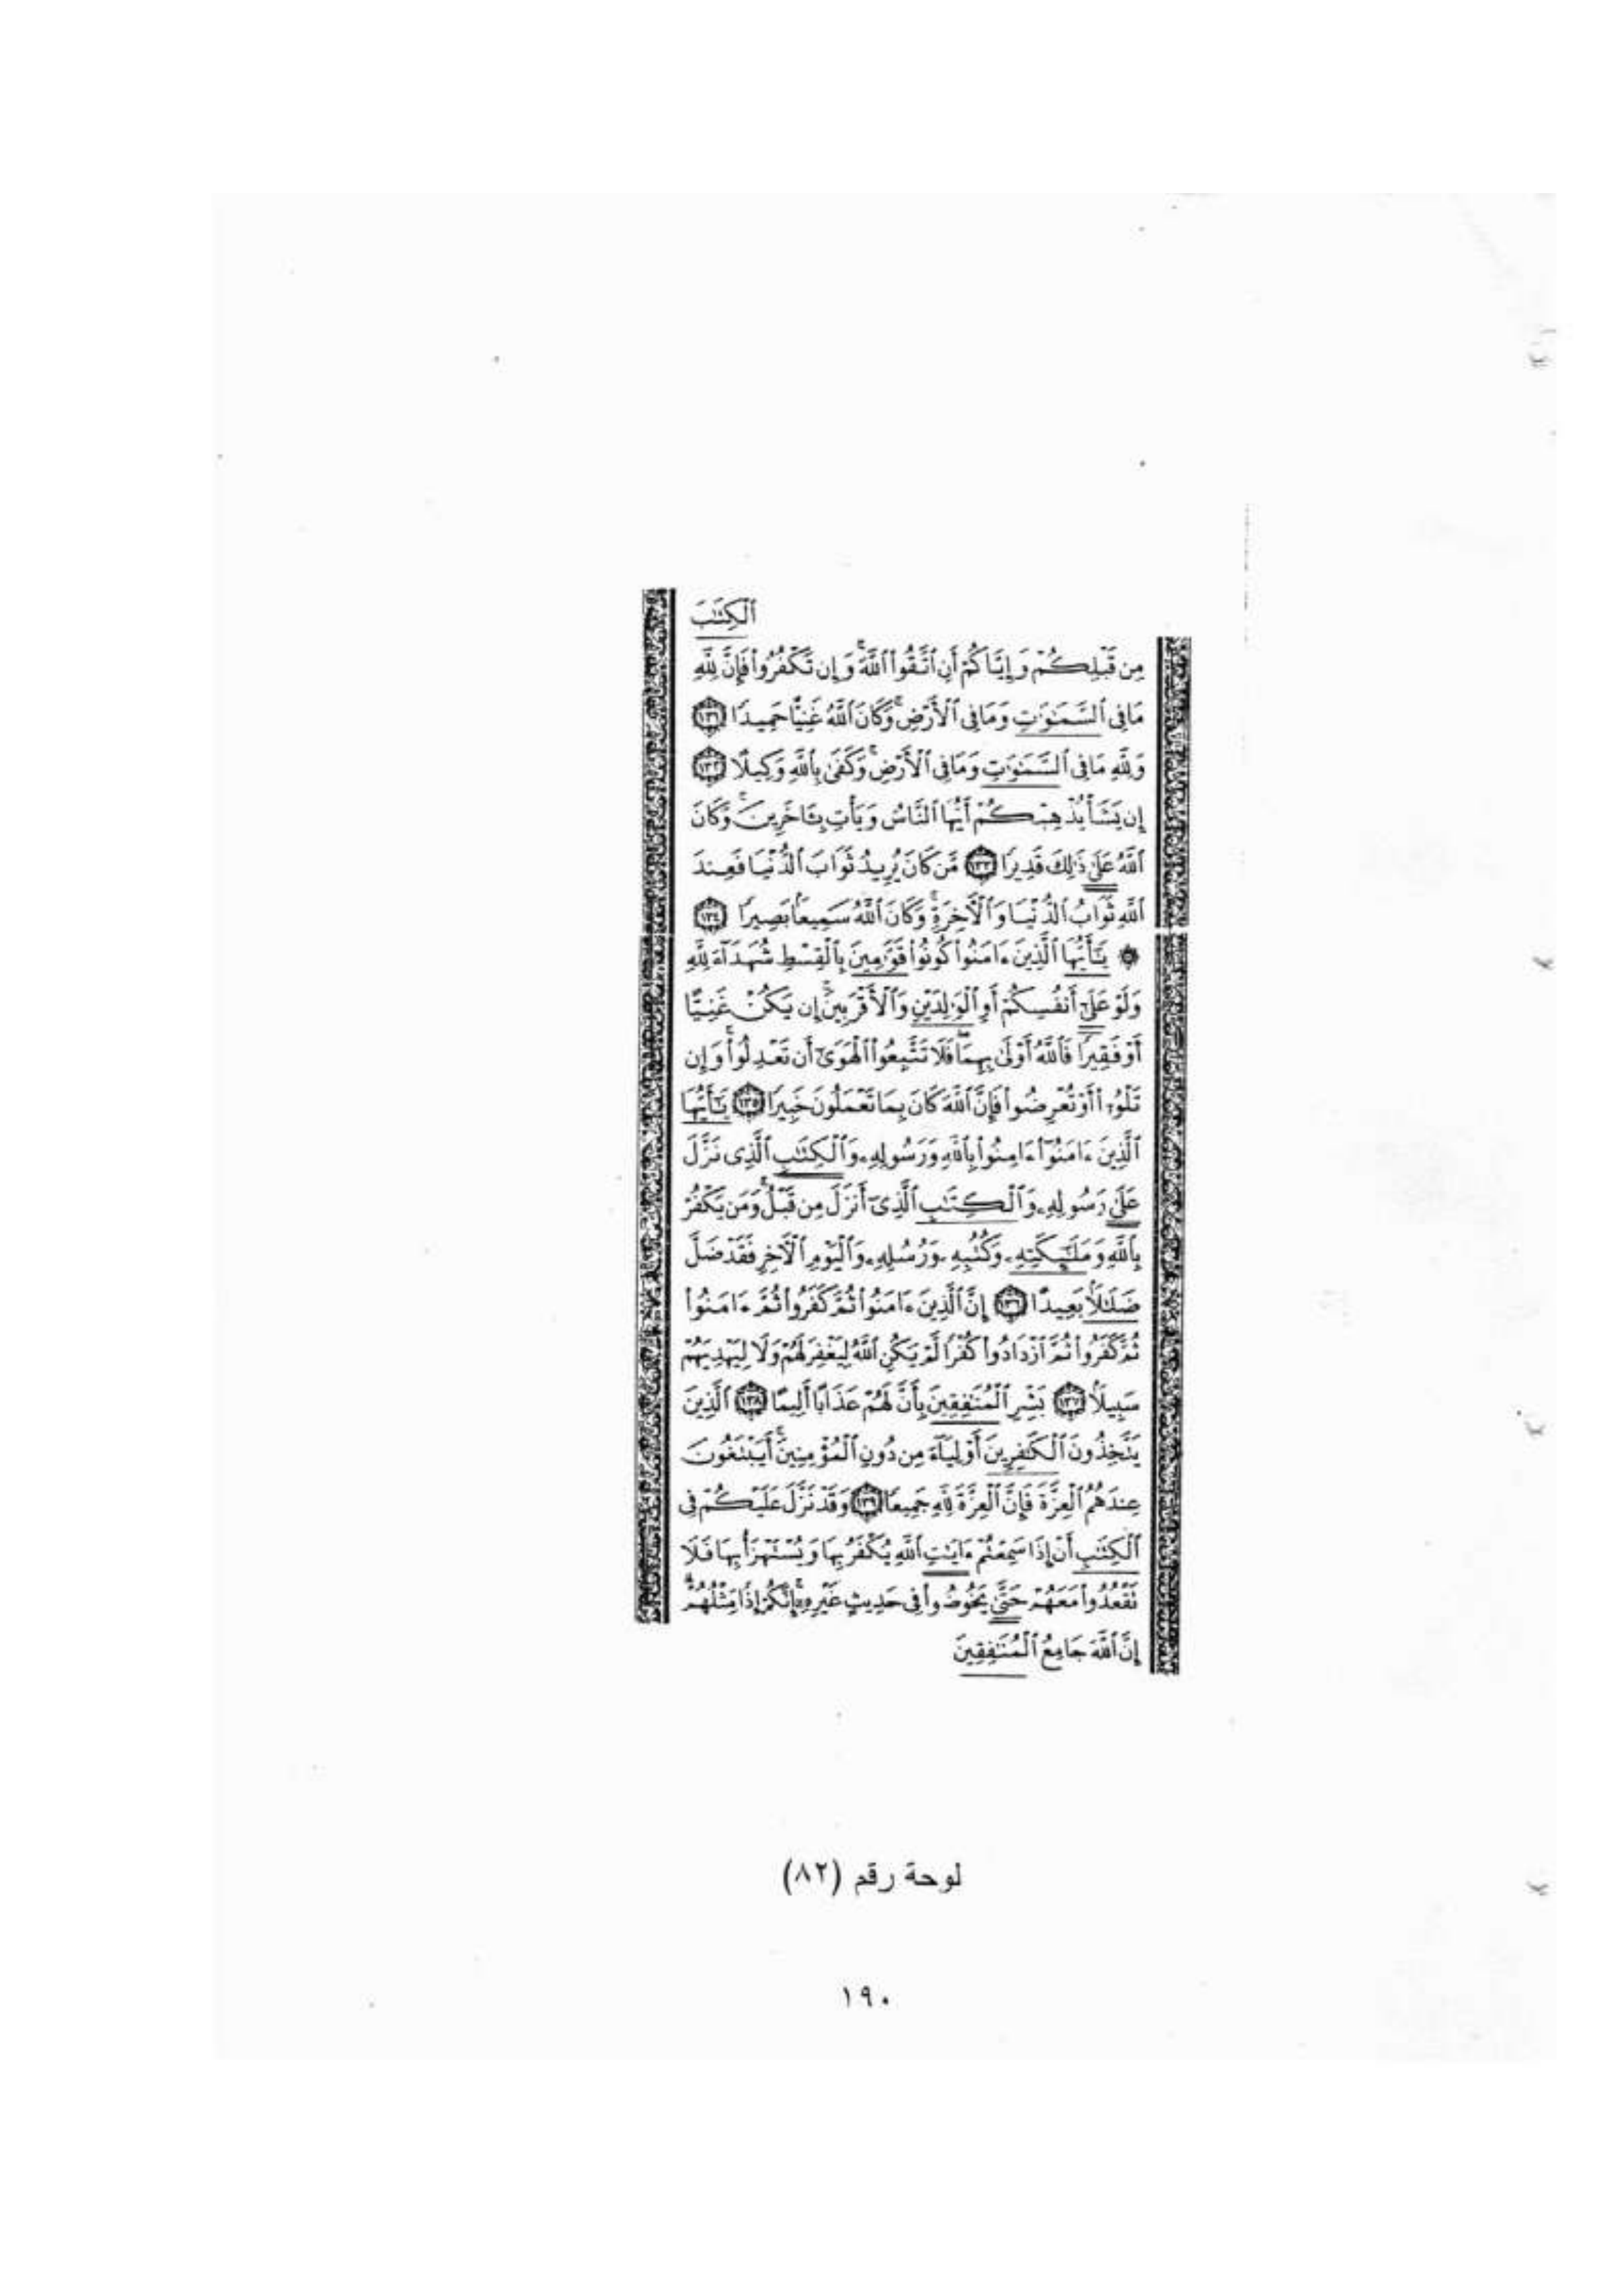 ٱلۡكِتَٰبَ
مِن قَبۡلِكُمۡ وَإِيَّاكُمۡ أَنِ ٱتَّقُواْ ٱللَّهَۚ وَإِن تَكۡفُرُواْ فَإِنَّ لِلَّهِ
مَا فِي ٱلسَّمَٰوَٰتِ وَمَا فِي ٱلۡأَرۡضِۚ وَكَانَ ٱللَّهُ غَنِيًّا حَمِيدٗا ١٣١
وَلِلَّهِ مَا فِي ٱلسَّمَٰوَٰتِ وَمَا فِي ٱلۡأَرۡضِۚ وَكَفَىٰ بِٱللَّهِ وَكِيلًا ١٣٢
إِن يَشَأۡ يُذۡهِبۡكُمۡ أَيُّهَا ٱلنَّاسُ وَيَأۡتِ بِـَٔاخَرِينَۚ وَكَانَ
ٱللَّهُ عَلَىٰ ذَٰلِكَ قَدِيرٗا ١٣٣ مَّن كَانَ يُرِيدُ ثَوَابَ ٱلدُّنۡيَا فَعِندَ
ٱللَّهِ ثَوَابُ ٱلدُّنۡيَا وَٱلۡأٓخِرَةِۚ وَكَانَ ٱللَّهُ سَمِيعَۢا بَصِيرٗا ١٣٤
۞ يَٰٓأَيُّهَا ٱلَّذِينَ ءَامَنُواْ كُونُواْ قَوَّٰمِينَ بِٱلۡقِسۡطِ شُهَدَآءَ لِلَّهِ
وَلَوۡ عَلَىٰٓ أَنفُسِكُمۡ أَوِ ٱلۡوَٰلِدَيۡنِ وَٱلۡأَقۡرَبِينَۚ إِن يَكُنۡ غَنِيًّا
أَوۡ فَقِيرٗا فَٱللَّهُ أَوۡلَىٰ بِهِمَاۖ فَلَا تَتَّبِعُواْ ٱلۡهَوَىٰٓ أَن تَعۡدِلُواْۚ وَإِن
تَلۡوُۥٓاْ أَوۡ تُعۡرِضُواْ فَإِنَّ ٱللَّهَ كَانَ بِمَا تَعۡمَلُونَ خَبِيرٗا ١٣٥ يَٰٓأَيُّهَا
ٱلَّذِينَ ءَامَنُوٓاْ ءَامِنُواْ بِٱللَّهِ وَرَسُولِهِۦ وَٱلۡكِتَٰبِ ٱلَّذِي نَزَّلَ
عَلَىٰ رَسُولِهِۦ وَٱلۡكِتَٰبِ ٱلَّذِيٓ أَنزَلَ مِن قَبۡلُۚ وَمَن يَكۡفُرۡ
بِٱللَّهِ وَمَلَٰٓئِكَتِهِۦ وَكُتُبِهِۦ وَرُسُلِهِۦ وَٱلۡيَوۡمِ ٱلۡأٓخِرِ فَقَدۡ ضَلَّ
ضَلَٰلَۢا بَعِيدًا ١٣٦ إِنَّ ٱلَّذِينَ ءَامَنُواْ ثُمَّ كَفَرُواْ ثُمَّ ءَامَنُواْ
ثُمَّ كَفَرُواْ ثُمَّ ٱزۡدَادُواْ كُفۡرٗا لَّمۡ يَكُنِ ٱللَّهُ لِيَغۡفِرَ لَهُمۡ وَلَا لِيَهۡدِيَهُمۡ
سَبِيلَۢا ١٣٧ بَشِّرِ ٱلۡمُنَٰفِقِينَ بِأَنَّ لَهُمۡ عَذَابًا أَلِيمًا ١٣٨ ٱلَّذِينَ
يَتَّخِذُونَ ٱلۡكَٰفِرِينَ أَوۡلِيَآءَ مِن دُونِ ٱلۡمُؤۡمِنِينَۚ أَيَبۡتَغُونَ
عِندَهُمُ ٱلۡعِزَّةَ فَإِنَّ ٱلۡعِزَّةَ لِلَّهِ جَمِيعٗا ١٣٩ وَقَدۡ نَزَّلَ عَلَيۡكُمۡ فِي
ٱلۡكِتَٰبِ أَنۡ إِذَا سَمِعۡتُمۡ ءَايَٰتِ ٱللَّهِ يُكۡفَرُ بِهَا وَيُسۡتَهۡزَأُ بِهَا فَلَا
تَقۡعُدُواْ مَعَهُمۡ حَتَّىٰ يَخُوضُواْ فِي حَدِيثٍ غَيۡرِهِۦٓۚ إِنَّكُمۡ إِذٗا مِّثۡلُهُمۡۗ
إِنَّ ٱللَّهَ جَامِعُ ٱلۡمُنَٰفِقِينَ
لوحة رقم (٨٢)
١٩٠